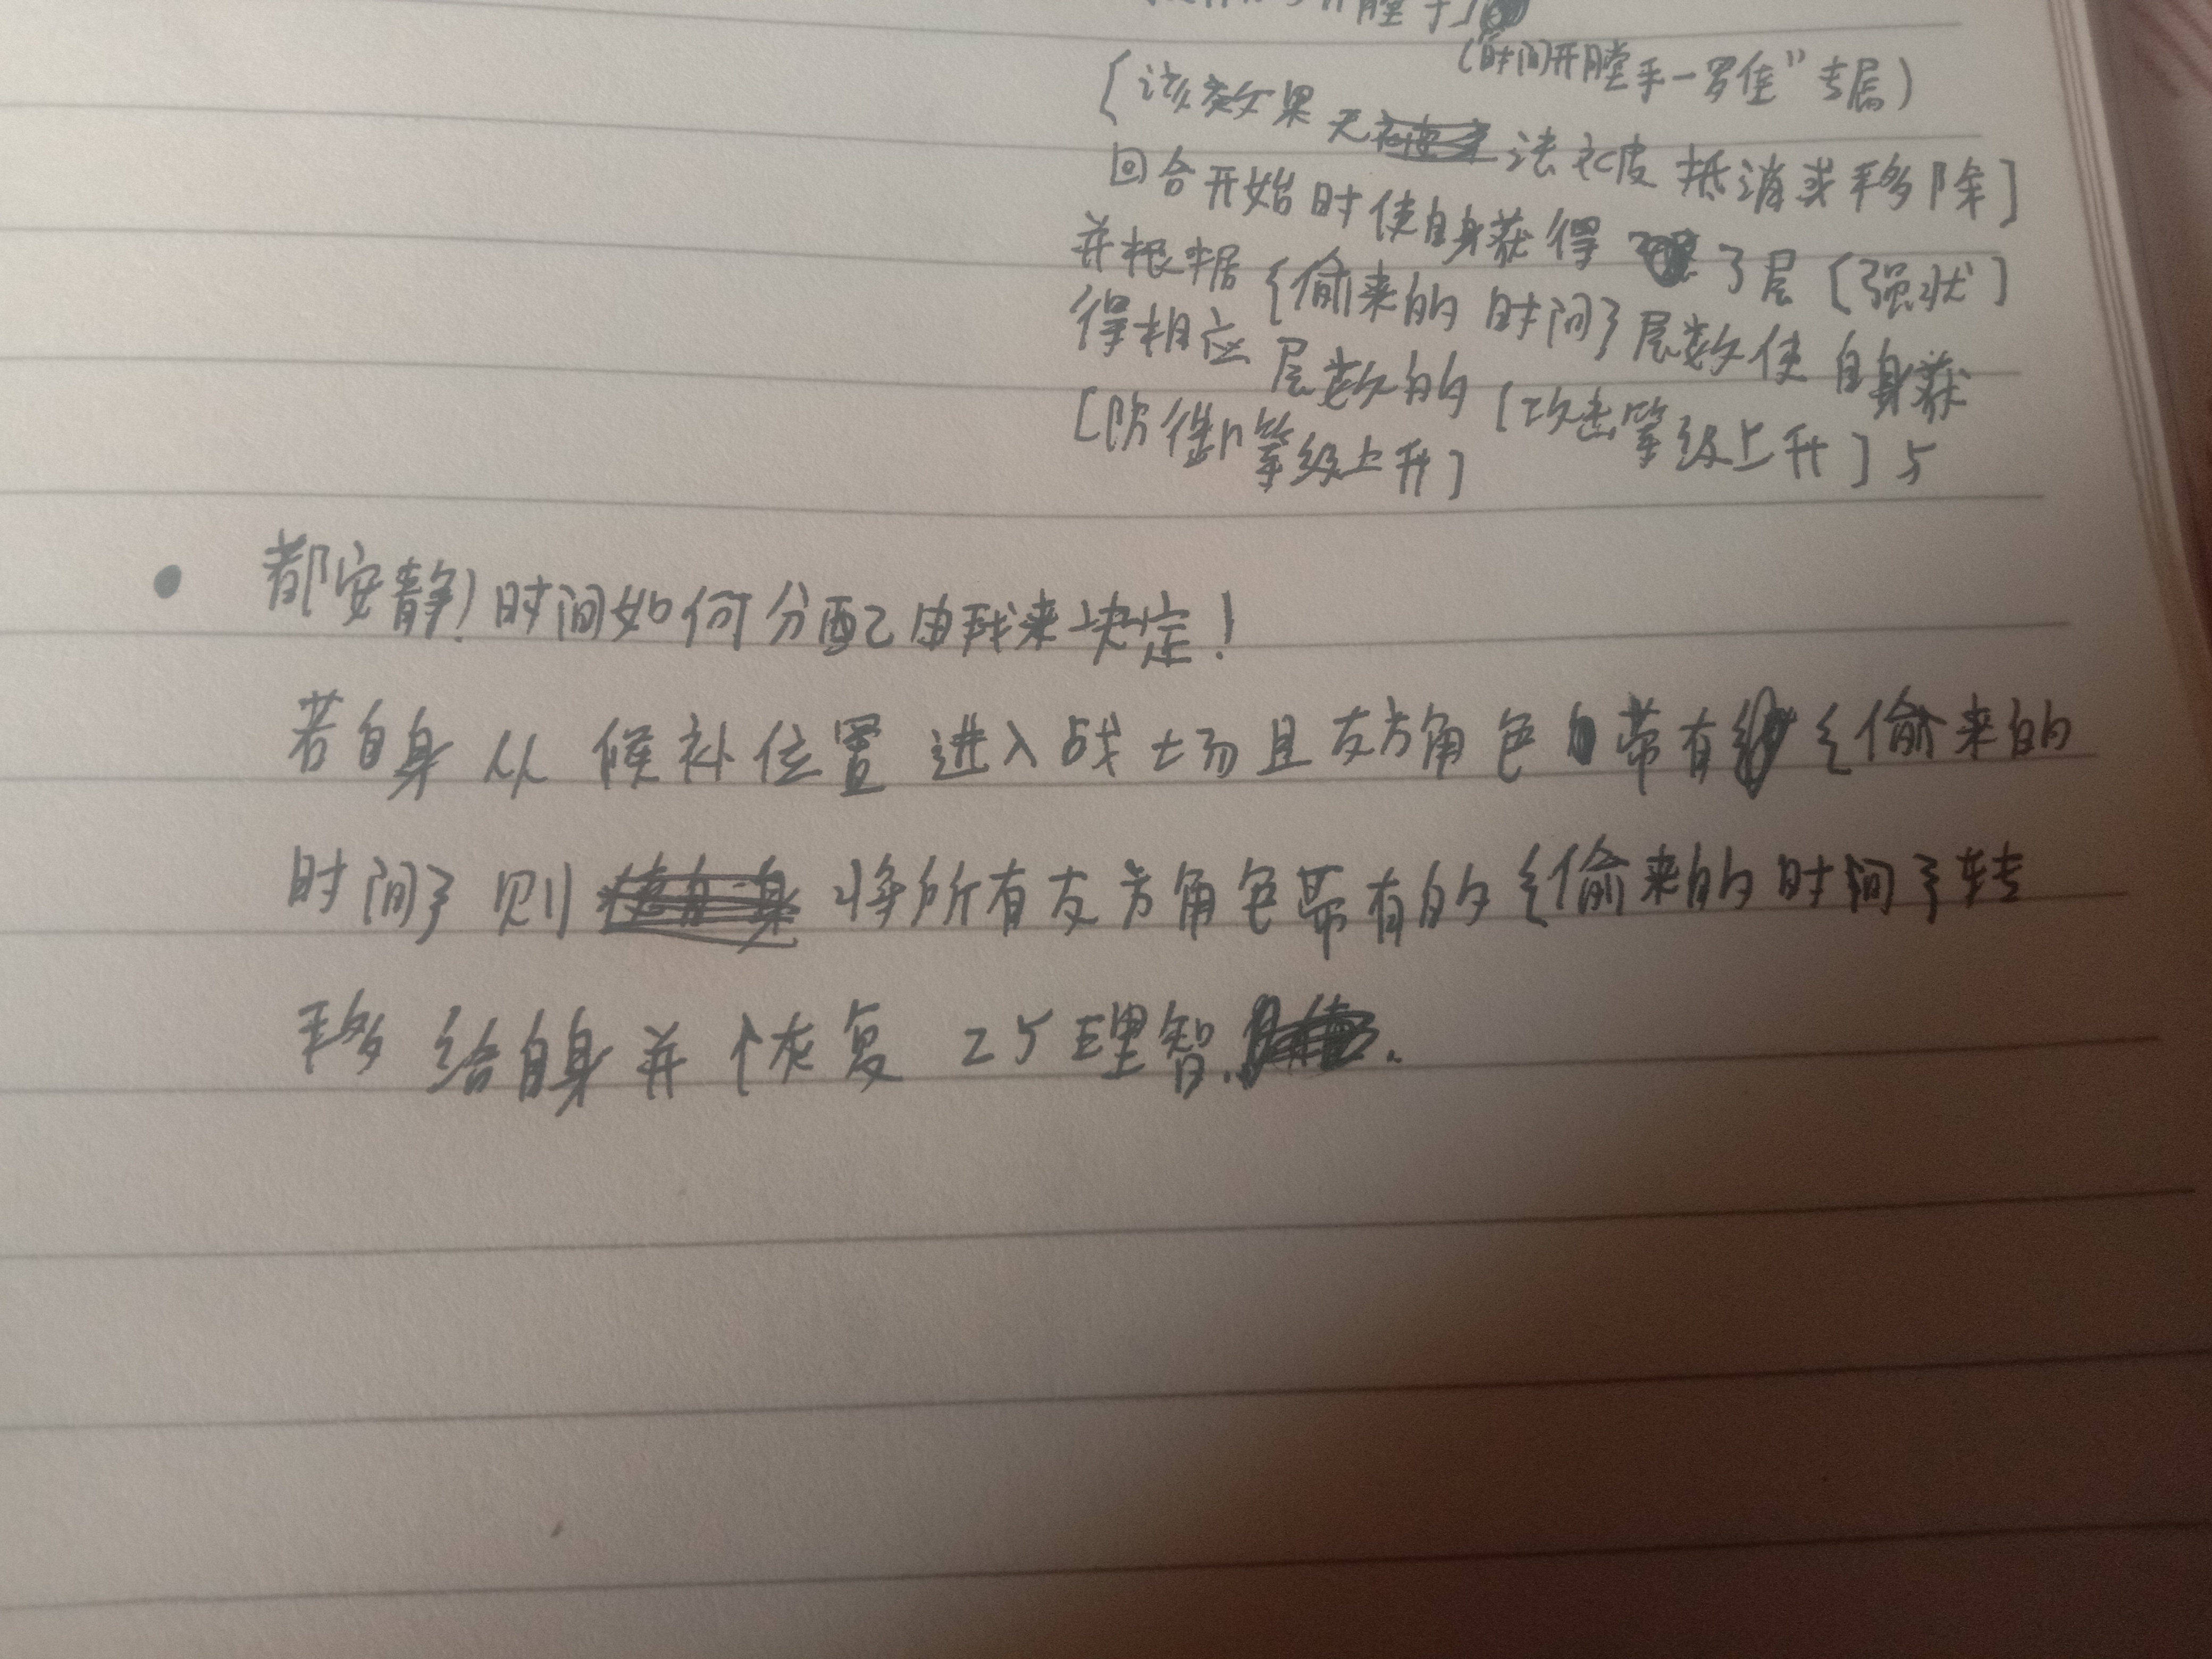 膛手]
(“时间开膛手一罗佳”专属)
[该效果无法被抵消或移除]
回合开始时使自身获得3层[强状]
并根据{偷来的时间}层数使自身获
得相应层数的[攻击等级上升]与
[防御等级上升]
• 都安静!时间如何分配由我来决定!
若自身从候补位置进入战场且友方角色带有{偷来的
时间}则将所有友方角色带有的{偷来的时间}转
移给自身并恢复25理智.